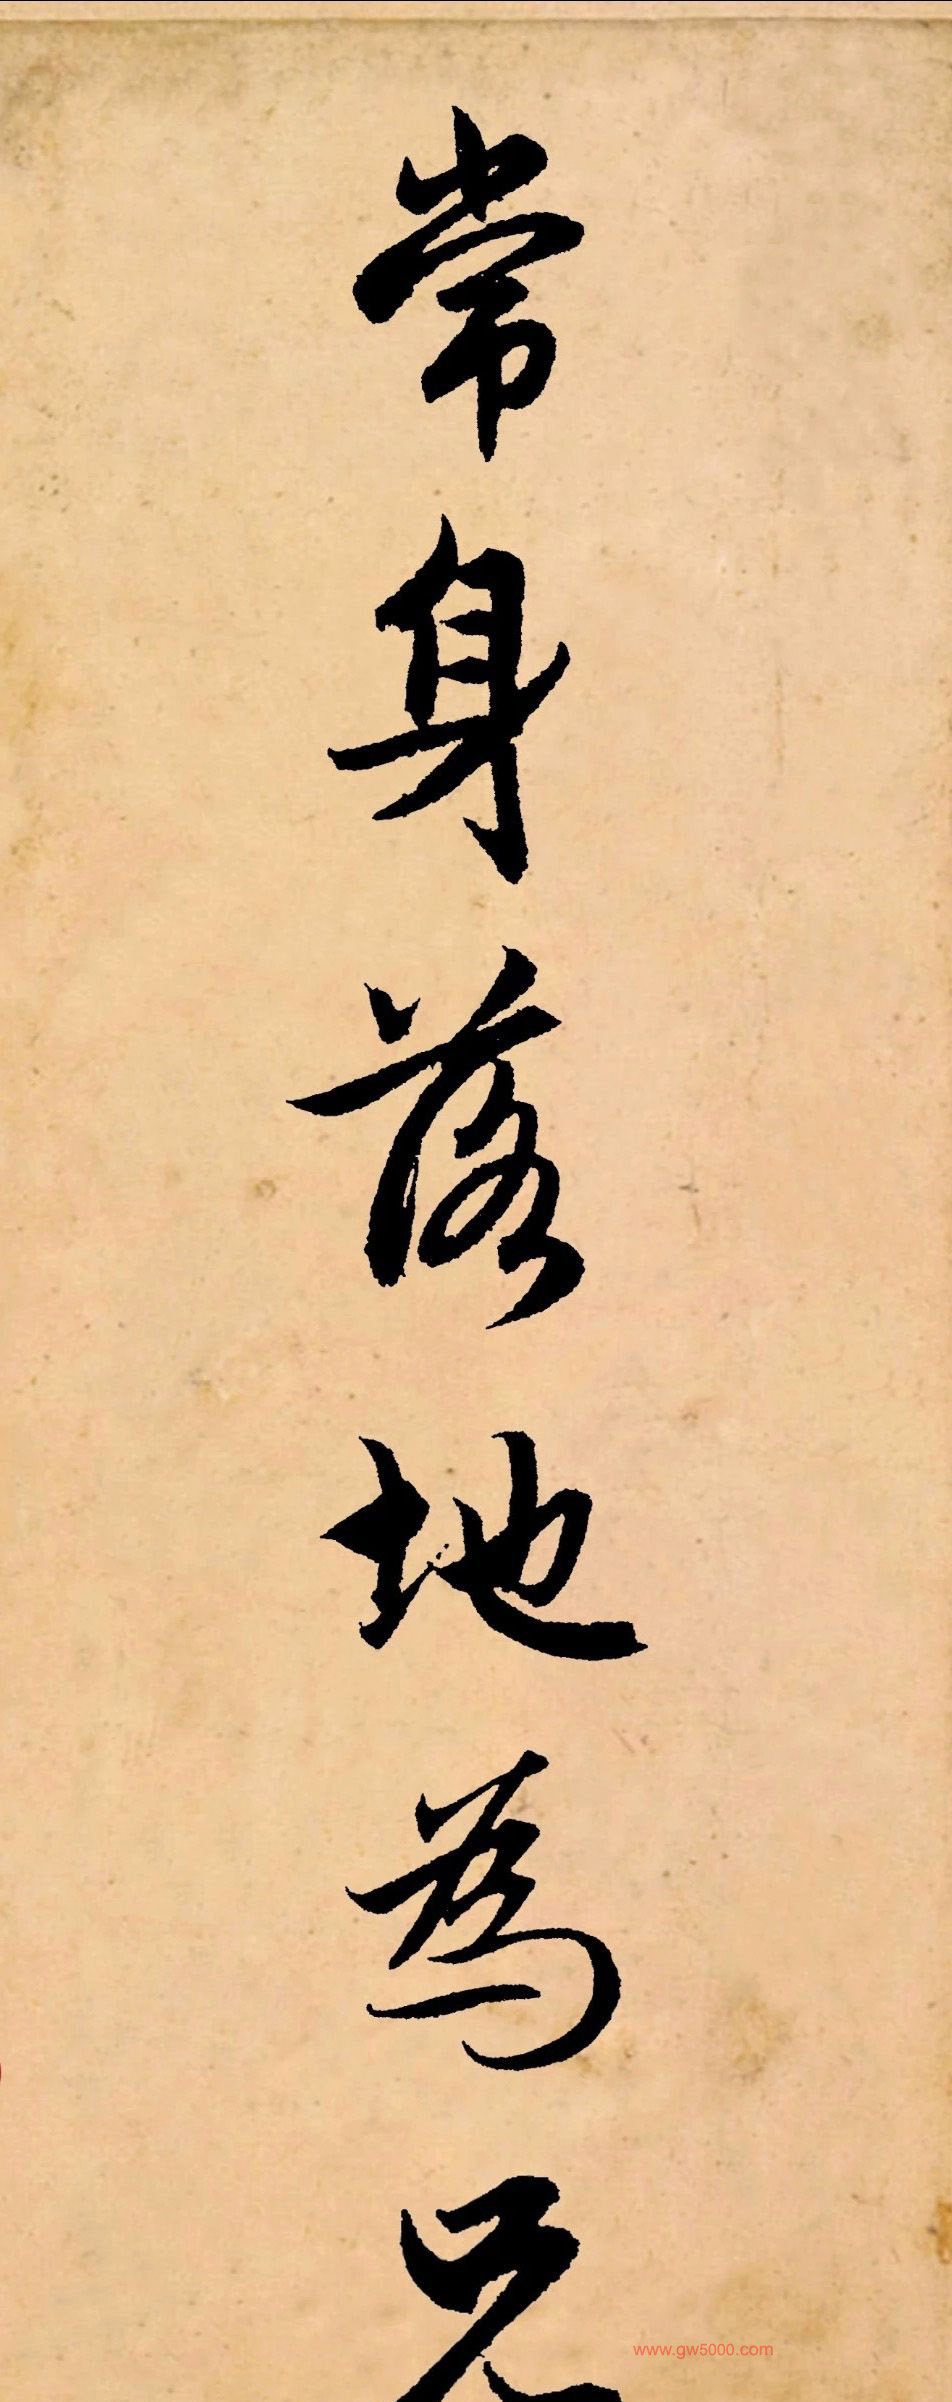 常身落地為兄
www.gw5000.com